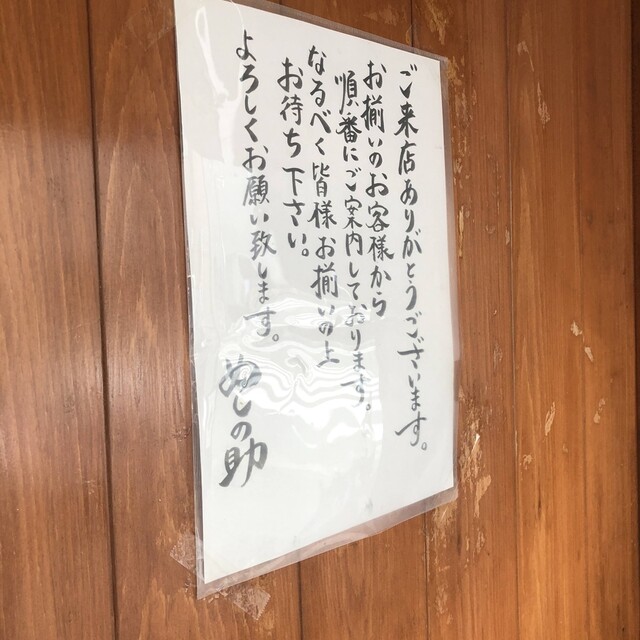 ご来店ありがとうございます。
お揃いのお客様から
順番にご案内しております。
なるべく皆様お揃いの上
お待ち下さい。
よろしくお願い致します。
ぬしの助